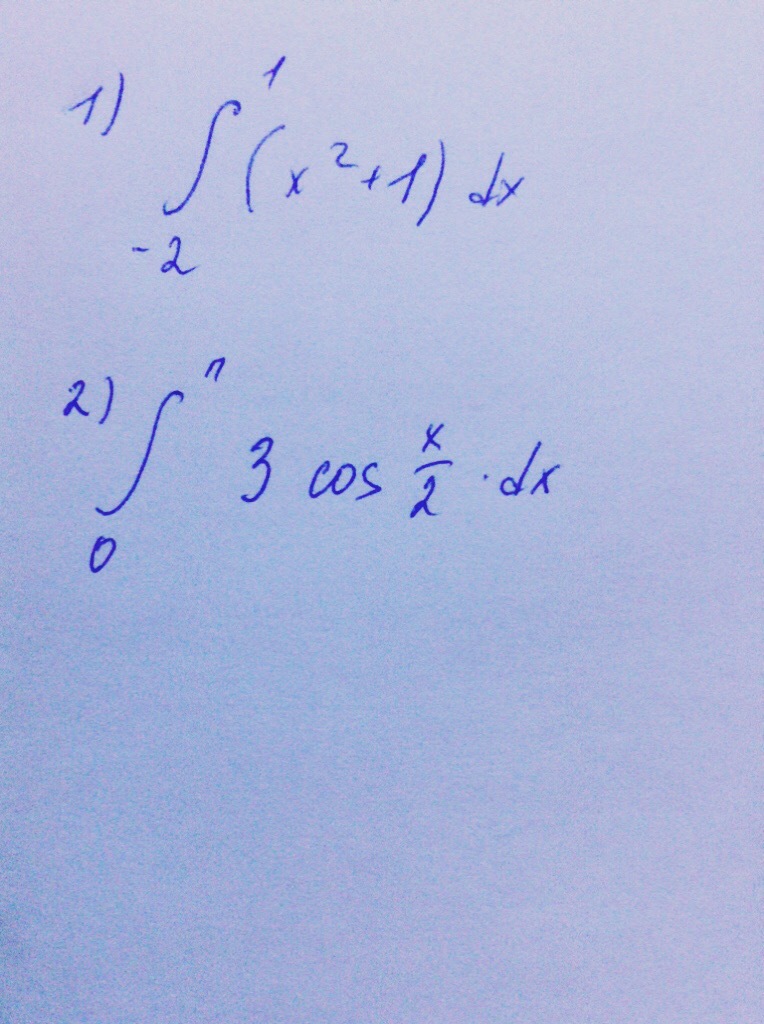 1) ∫₋₂¹ (x²+1) dx
2) ∫₀^π 3 cos x/2 · dx